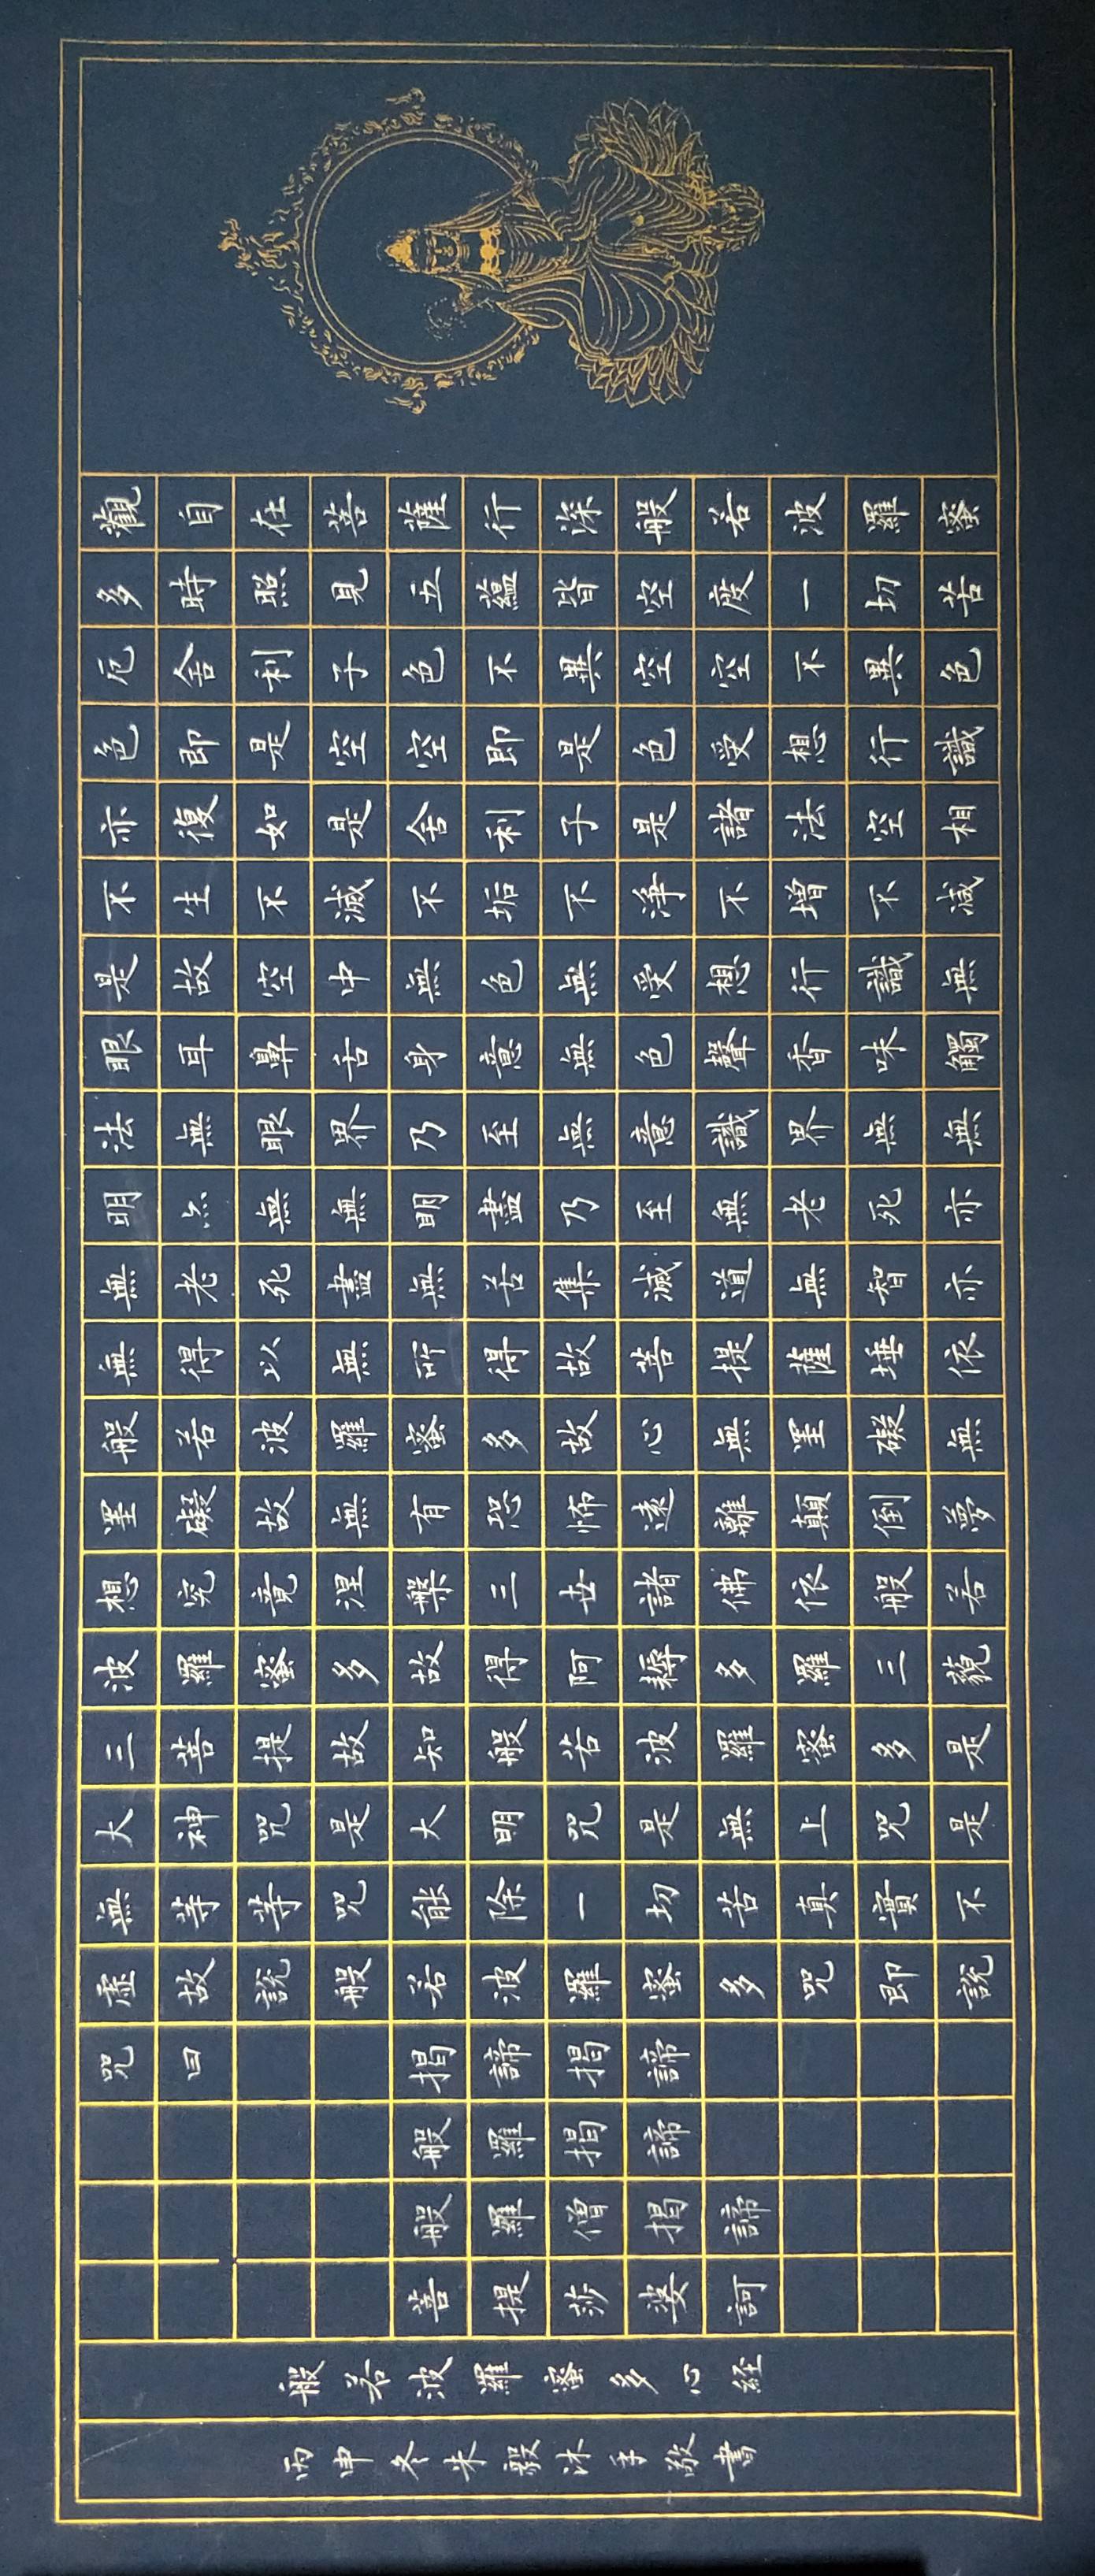 觀自在菩薩行深般若波羅蜜
多時照見五蘊皆空度一切苦
厄舍利子色不異空空不異色
色即是空空即是色受想行識
亦復如是舍利子是諸法空相
不生不滅不垢不淨不增不減
是故空中無色無受想行識無
眼耳鼻舌身意無色聲香味觸
法無眼界乃至無意識界無無
明亦無無明盡乃至無老死亦
無老死盡無苦集滅道無智亦
無得以無所得故菩提薩埵依
般若波羅蜜多故心無罣礙無
罣礙故無有恐怖遠離顛倒夢
想究竟涅槃三世諸佛依般若
波羅蜜多故得阿耨多羅三藐
三菩提故知般若波羅蜜多是
大神咒是大明咒是無上咒是
無等等咒能除一切苦真實不
虛故說般若波羅蜜多咒即說
咒曰 揭諦揭諦
般羅揭諦
般羅僧揭諦
菩提莎婆訶
般若波羅蜜多心经
丙申冬朱毅沐手敬書